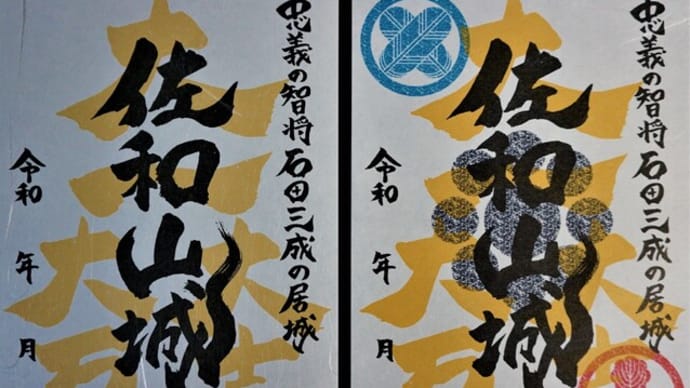 忠義の智将 石田三成の居城
佐和山城
令和 年 月
忠義の智将 石田三成の居城
佐和山城
令和 年 月